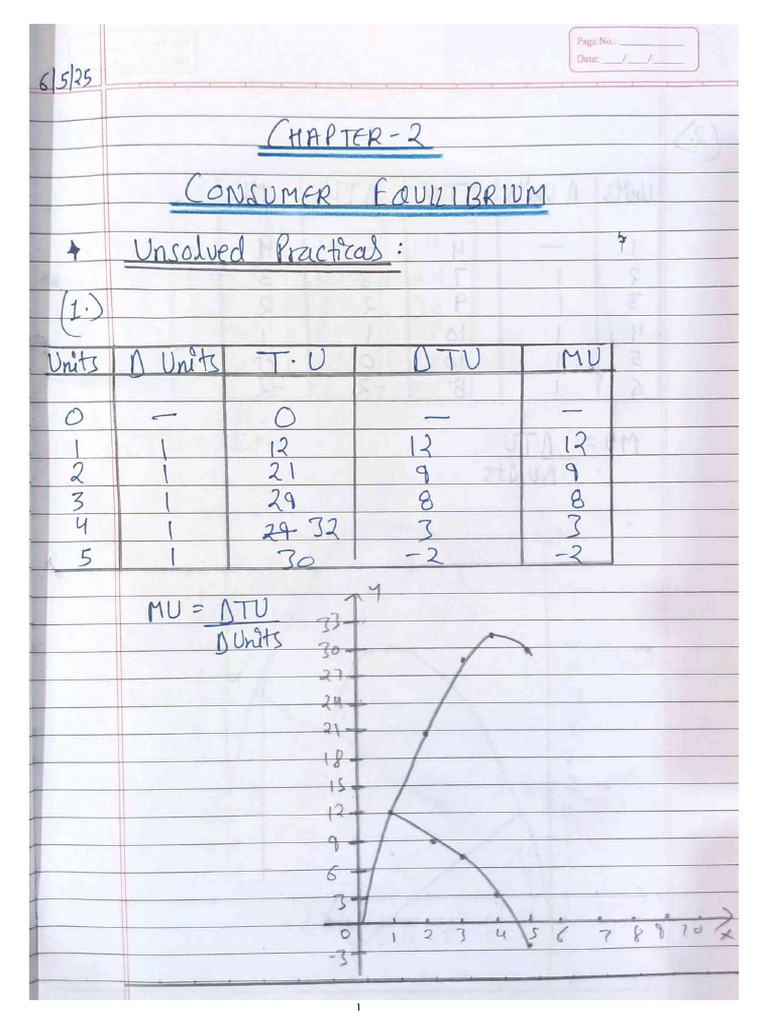 Page No.:
Date: __/__/__
6/5/25
CHAPTER-2
CONSUMER EQUILIBRIUM
Unsolved Practicals:
(1.)
Units Δ Units T.U ΔTU MU
0 — 0 — —
1 1 12 12 12
2 1 21 9 9
3 1 29 8 8
4 1 29 32 3 3
5 1 30 -2 -2
MU = ΔTU
ΔUnits
y
33
30
27
24
21
18
15
12
9
6
3
0 1 2 3 4 5 6 7 8 9 10 x
-3
1